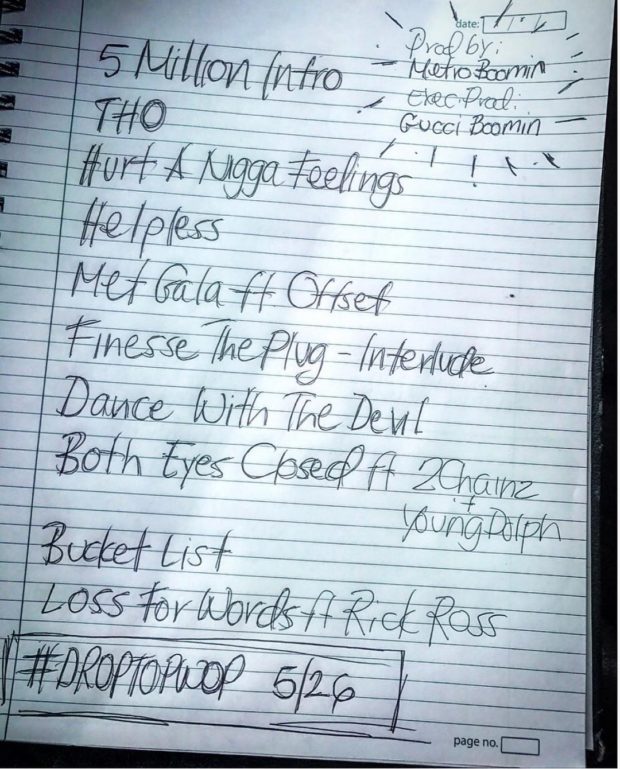 date:
Prod by:
Metro Boomin
Exec. Prod.:
Gucci Boomin
5 Million Intro
THO
Hurt A Nigga Feelings
Helpless
Met Gala ft Offset
Finesse The Plug - Interlude
Dance With The Devil
Both Eyes Closed ft 2Chainz
+
Young Dolph
Bucket List
Loss For Words ft Rick Ross
#DROPTOPWOP 5/26
page no.